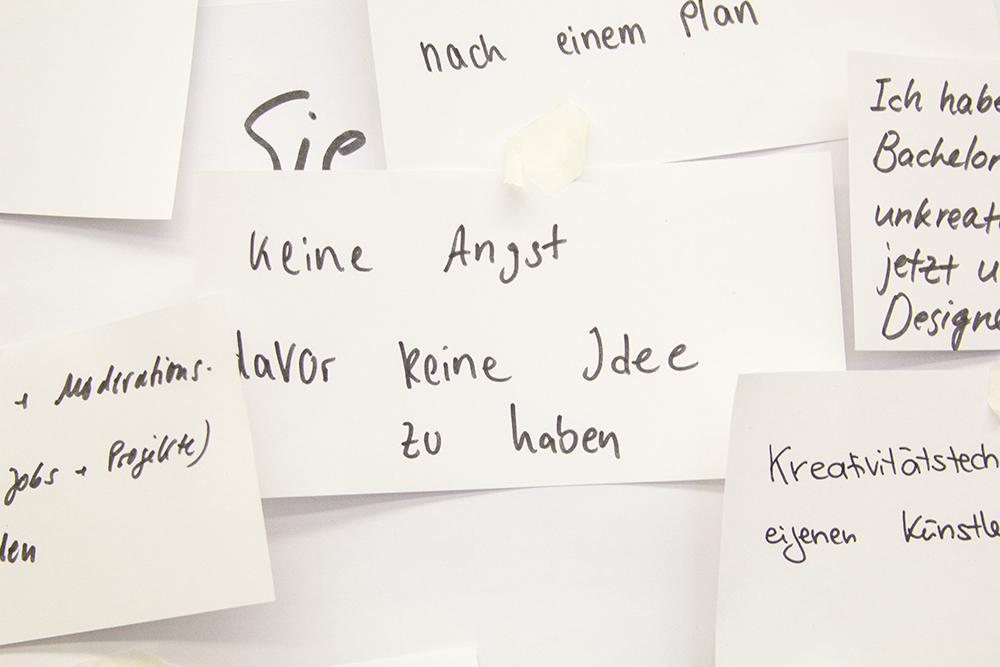 nach einem Plan
Sie
Keine Angst
davor keine Idee
zu haben
+ Moderations-
Jobs + Projekte)
den
Ich habe
Bachelor
unkreati
jetzt u
Designe
Kreativitätstech
eigenen Künstle